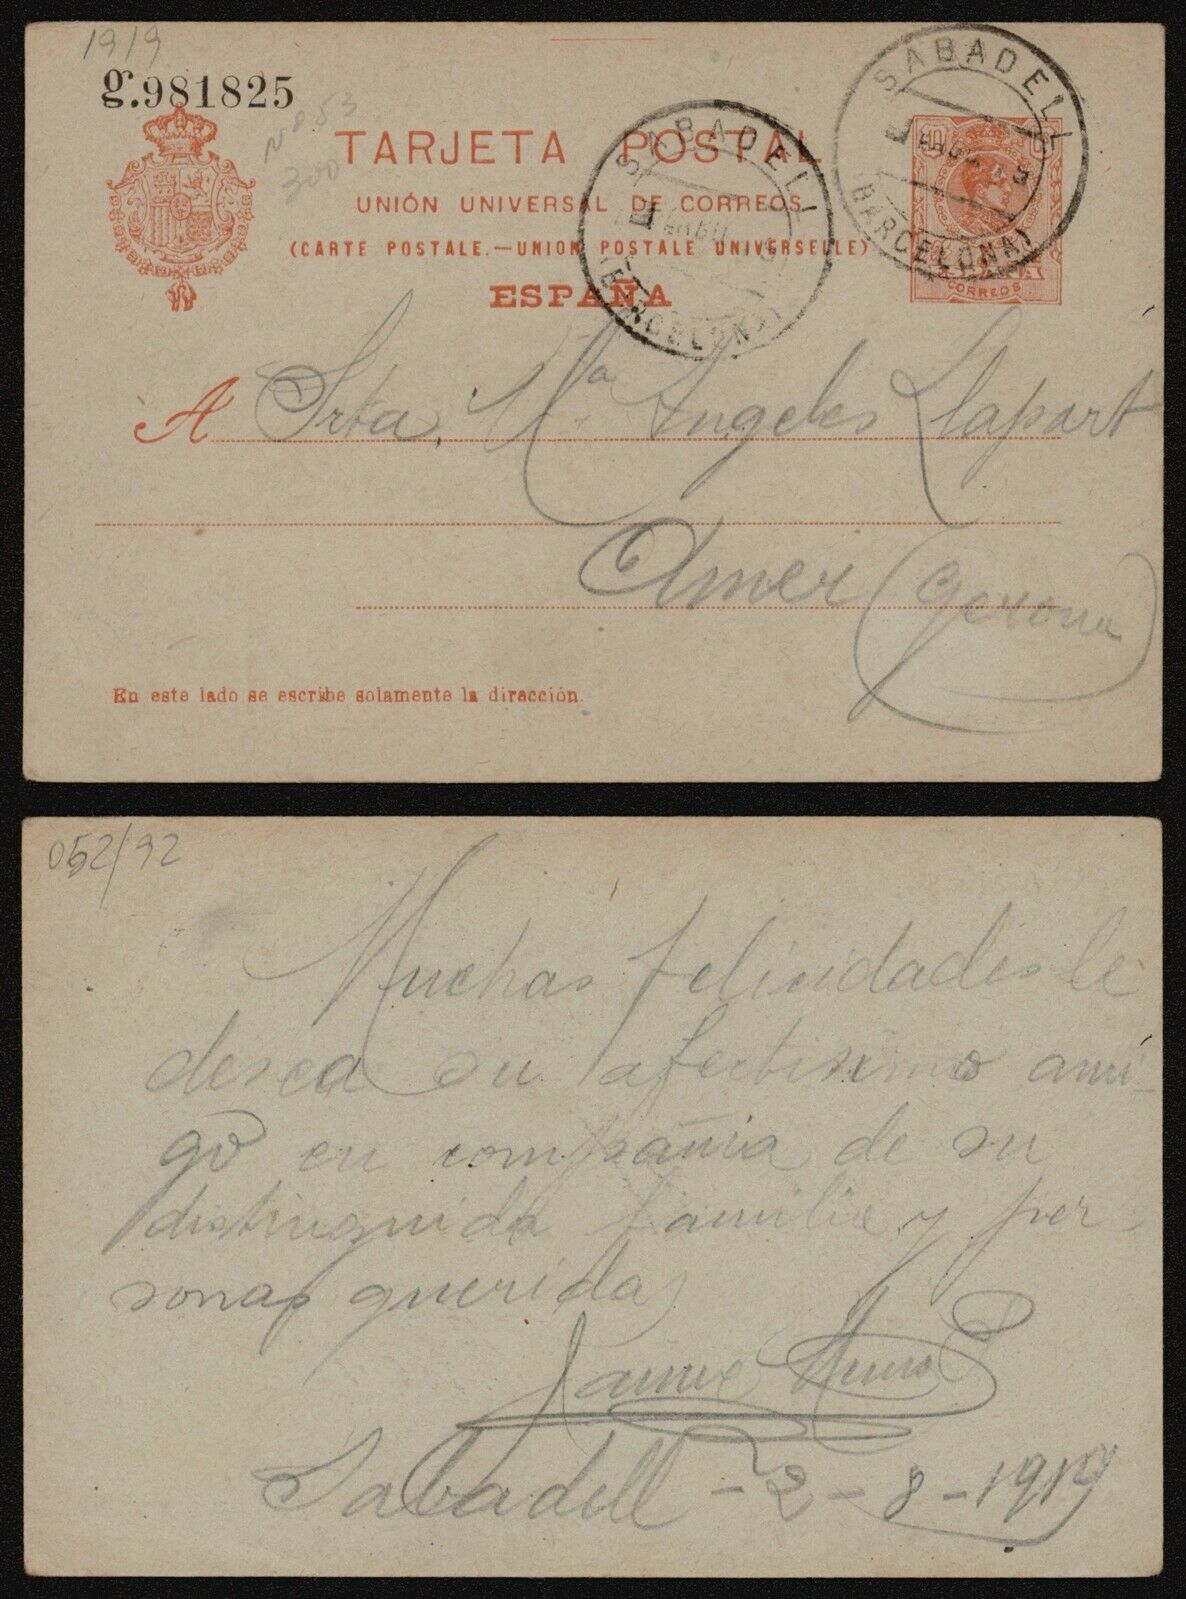 1919
g.981825
Nº 853
300
TARJETA POSTAL
UNIÓN UNIVERSAL DE CORREOS
(CARTE POSTALE.—UNION POSTALE UNIVERSELLE)
ESPAÑA
SABADELL
(BARCELONA)
SABADELL
(BARCELONA)
ESPAÑA
CORREOS
A Srta. Mª Angeles Llapart
Amer (Gerona)
En este lado se escribe solamente la dirección.
052/92
Muchas felicidades le
desea su afectisimo ami-
go en compañia de su
distinguida familia y per-
sonas queridas
Jaime
Sabadell - 2 - 8 - 1919